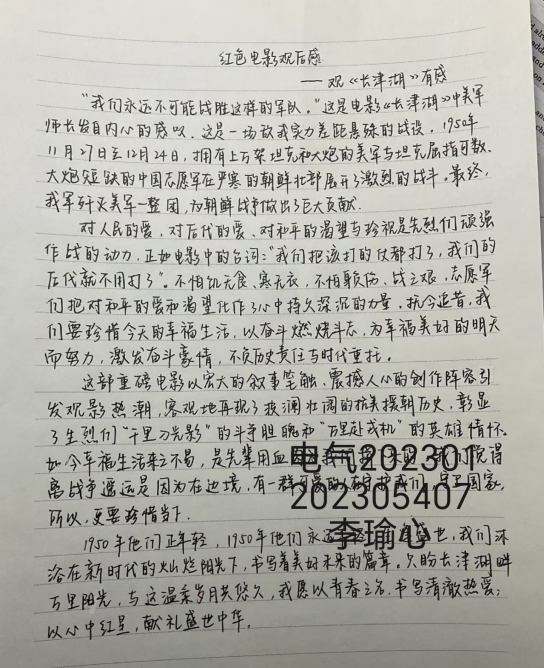 红色电影观后感
——观《长津湖》有感
“我们永远不可能战胜这样的军队。”这是电影《长津湖》中美军
师长发自内心的感叹。这是一场敌我实力差距悬殊的战役，1950年
11月27日至12月24日，拥有上万架坦克和大炮的美军与坦克屈指可数、
大炮短缺的中国志愿军在严寒的朝鲜北部展开了激烈的战斗。最终，
我军歼灭美军一整团，为朝鲜战争做出了巨大贡献。
对人民的爱，对后代的爱、对和平的渴望与珍视是先烈们顽强
作战的动力，正如电影中的台词：“我们把该打的仗都打了，我们的
后代就不用打了”。不怕饥无食、寒无衣，不怕颗伤、战之艰，志愿军
们把对和平的爱和渴望化作了心中持久深沉的力量，抚今追昔，我
们要珍惜今天的幸福生活，以奋斗燃烧斗志，为幸福美好的明天
而努力，激发奋斗豪情，不负历史责任与时代重托。
这部重磅电影以宏大的叙事笔触、震撼人心的创作阵容引
发观影热潮，客观地再现了波澜壮阔的抗美援朝历史，彰显
了先烈们“千里刀光影”的斗争胆魄和“万里赴戎机”的英雄情怀。
如今幸福生活来之不易，是先辈用血
离战争遥远是因为在边境，有一群可爱的人在守护我们，
国家，
所以，更要珍惜当下。
1950年他们正年轻，1950年他们永远
世，我们沐
浴在新时代的灿烂阳光下，书写着美好未来的篇章。久盼长津湖畔
万里阳光，与这温柔岁月共悠久，我愿以青春之名，书写清澈热爱；
以心中红星，献礼盛世中华。
电气202301
202305407
李瑜心